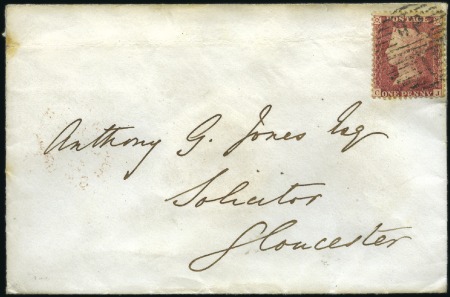 POSTAGE
ONE PENNY
Anthony G. Jones Esq
Solicitor
Gloucester